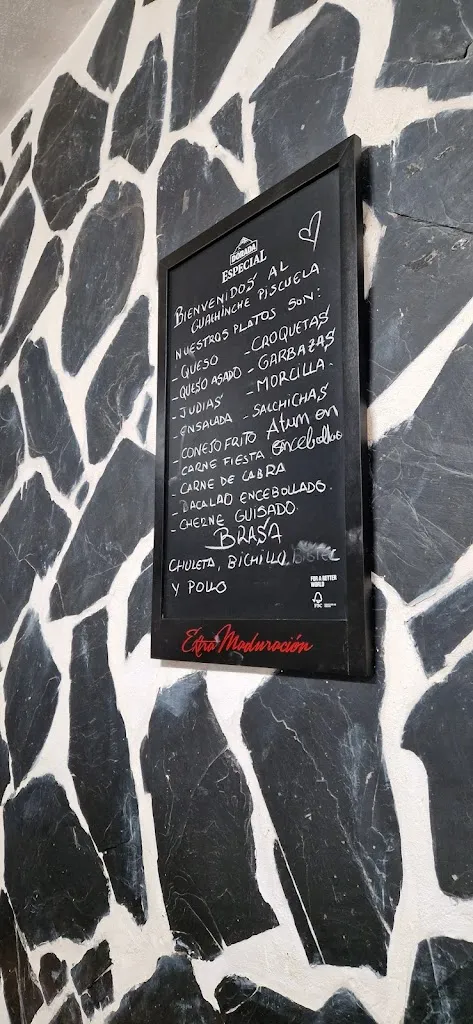 DORADA
ESPECIAL
BIENVENIDOS AL
GUACHINCHE PISCUELA
NUESTROS PLATOS SON:
- QUESO - CROQUETAS
- QUESO ASADO - GARBAZAS
- JUDIAS - MORCILLA.
- ENSALADA - SALCHICHAS
- CONEJO FRITO Atum en
- CARNE FIESTA encebollao
- CARNE DE CABRA
- BACALAO ENCEBOLLADO.
- CHERNE GUISADO.
BRASA
CHULETA, BICHILLO,
Y POLLO
FOR A BETTER
WORLD
FSC
Extra Maduración